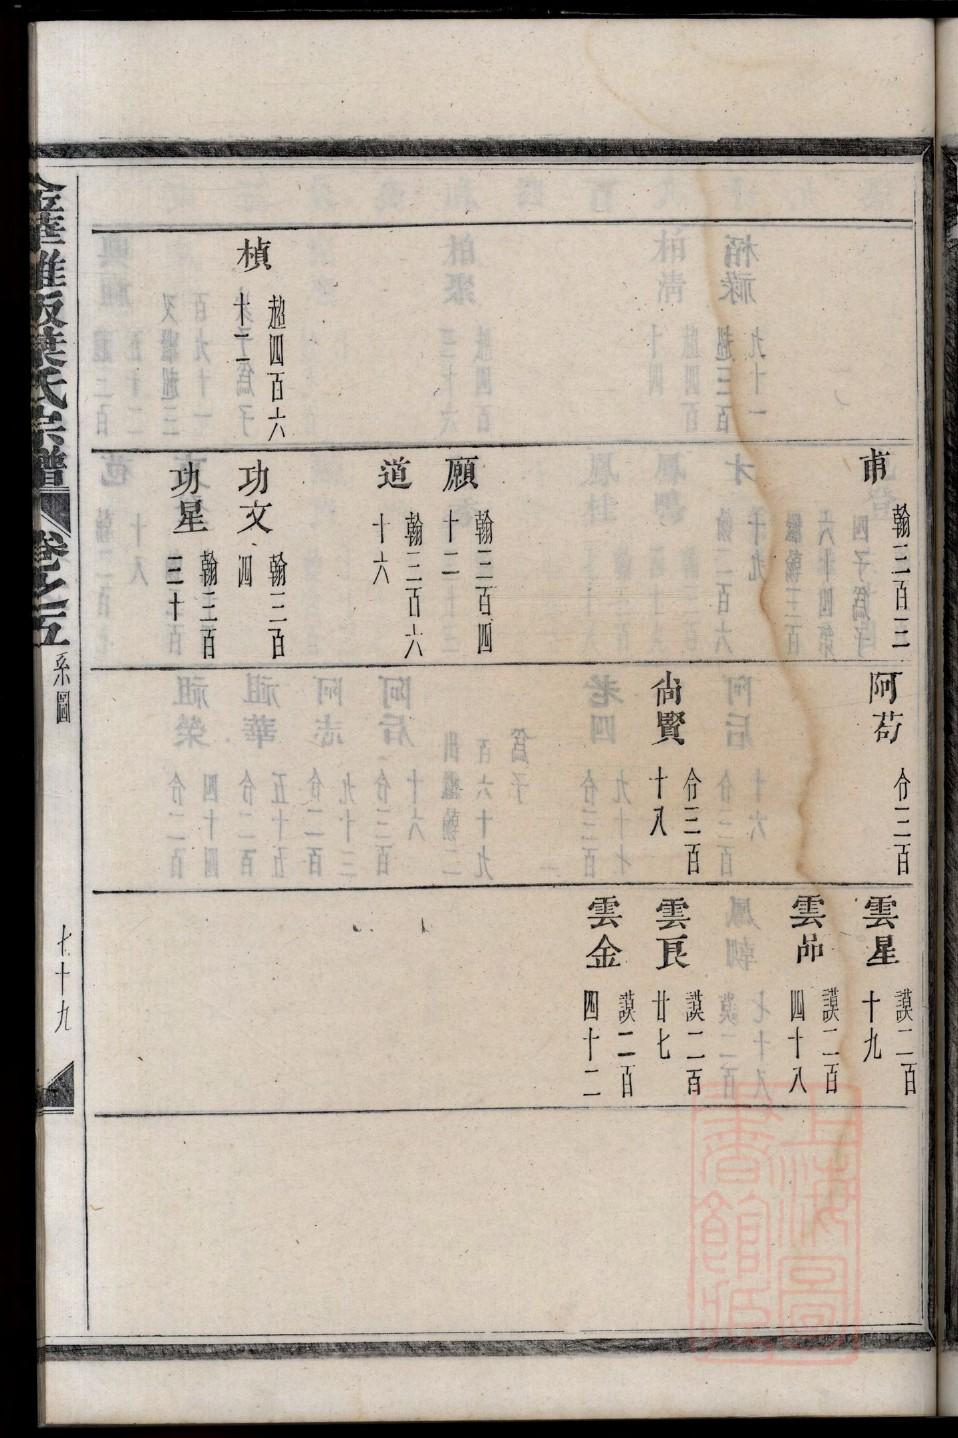 楨 超四百六
十二
甫 翰三百三
願 翰三百四
十二
道 翰三百六
十六
功文 翰三百
四
功星 翰三百
三十
阿苟 分三百
尚賢 分三百
十八
雲星 謨二百
十九
雲昂 謨二百
四十八
雲良 謨二百
廿七
雲金 謨二百
四十二
葉氏宗譜
卷之五
系圖
七十九
上海圖
書館藏